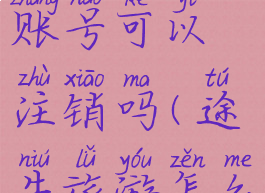 zhàng hào kě yǐ
账号可以
zhù xiāo ma tú
注销吗(途
niú lǚ yóu zěn me
牛旅游怎么